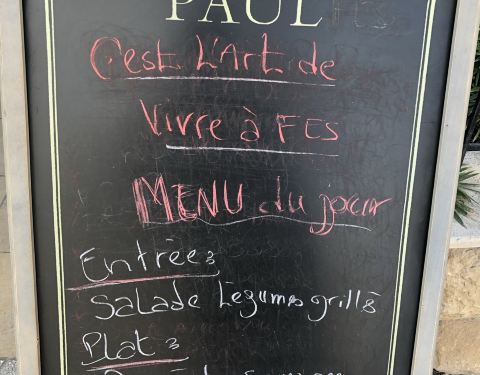 PAUL
C'est L'Art de
Vivre à FES
MENU du jour
Entrées
Salade Légumes grills
Plats